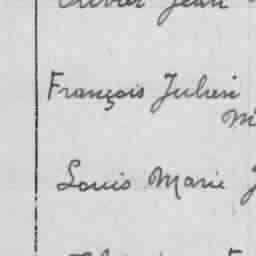 Olivier Jean
François Julien
M
Louis Marie J